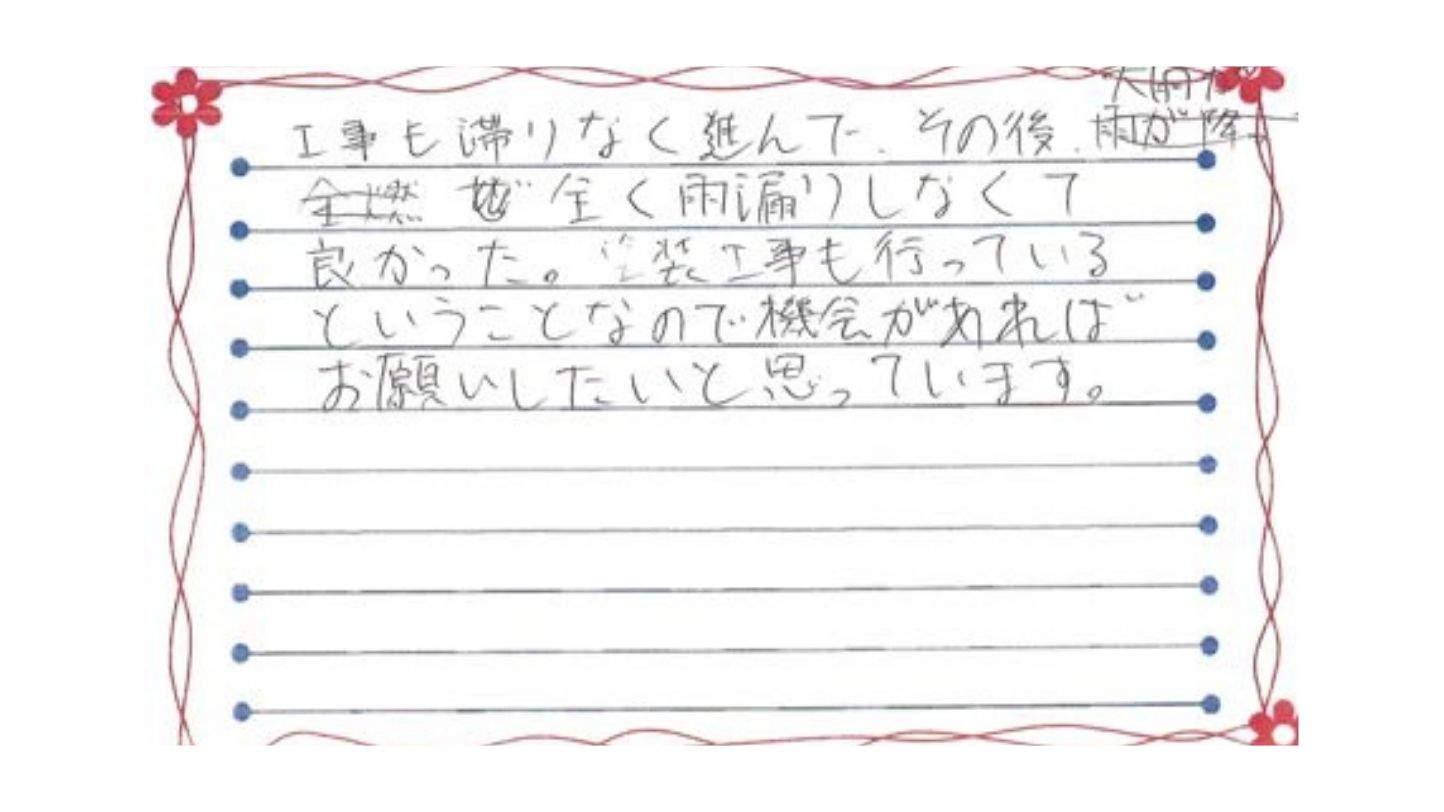 大雨が
工事も滞りなく進んで、その後、雨が降
全然 全く雨漏りしなくて
良かった。塗装工事も行っている
ということなので機会があれば
お願いしたいと思っています。